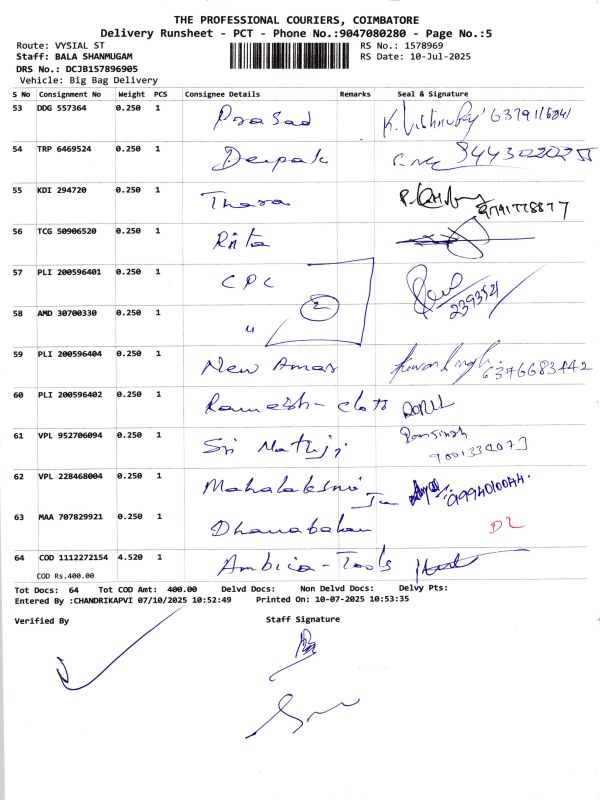 THE PROFESSIONAL COURIERS, COIMBATORE
Delivery Runsheet - PCT - Phone No.:9047080280 - Page No.:5
Route: VYSIAL ST RS No.: 1578969
Staff: BALA SHANMUGAM RS Date: 10-Jul-2025
DRS No.: DCJB157896905
Vehicle: Big Bag Delivery
S No Consignment No Weight PCS Consignee Details Remarks Seal & Signature
53 DDG 557364 0.250 1 Prasad
54 TRP 6469524 0.250 1 Deepak
55 KDI 294720 0.250 1 Thara 9791778877
56 TCG 50906520 0.250 1 Rita
57 PLI 200596401 0.250 1 CPC 2393521
2
58 AMD 30700330 0.250 1 "
59 PLI 200596404 0.250 1 New Amar 6376683442
60 PLI 200596402 0.250 1 Ramesh - Cloth
61 VPL 952706094 0.250 1 Sri Mathaji Ramsingh
62 VPL 228468004 0.250 1 Mahalakshmi
63 MAA 707829921 0.250 1 Dhanabalan DL
64 COD 1112272154 4.520 1 Ambica - Tools
COD Rs.400.00
Tot Docs: 64 Tot COD Amt: 400.00 Delvd Docs: Non Delvd Docs: Delvy Pts:
Entered By :CHANDRIKAPVI 07/10/2025 10:52:49 Printed On: 10-07-2025 10:53:35
Verified By Staff Signature